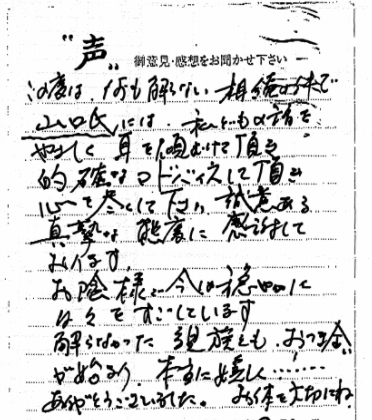 "声" 御意見・感想をお聞かせ下さい
この度は、何も解らない相続の件で
山口氏には、私どもの話を
やさしく耳を傾むけて頂き
的確なアドバイスして頂き
心を尽くして下さり誠意ある
真摯な態度に感謝して
おります。
お陰様で今は穏やかに
日々をすごしています
解らなかった親族とも、おつき合い
が始まり、本当に嬉しく……
ありがとうございました。お体を大切にね